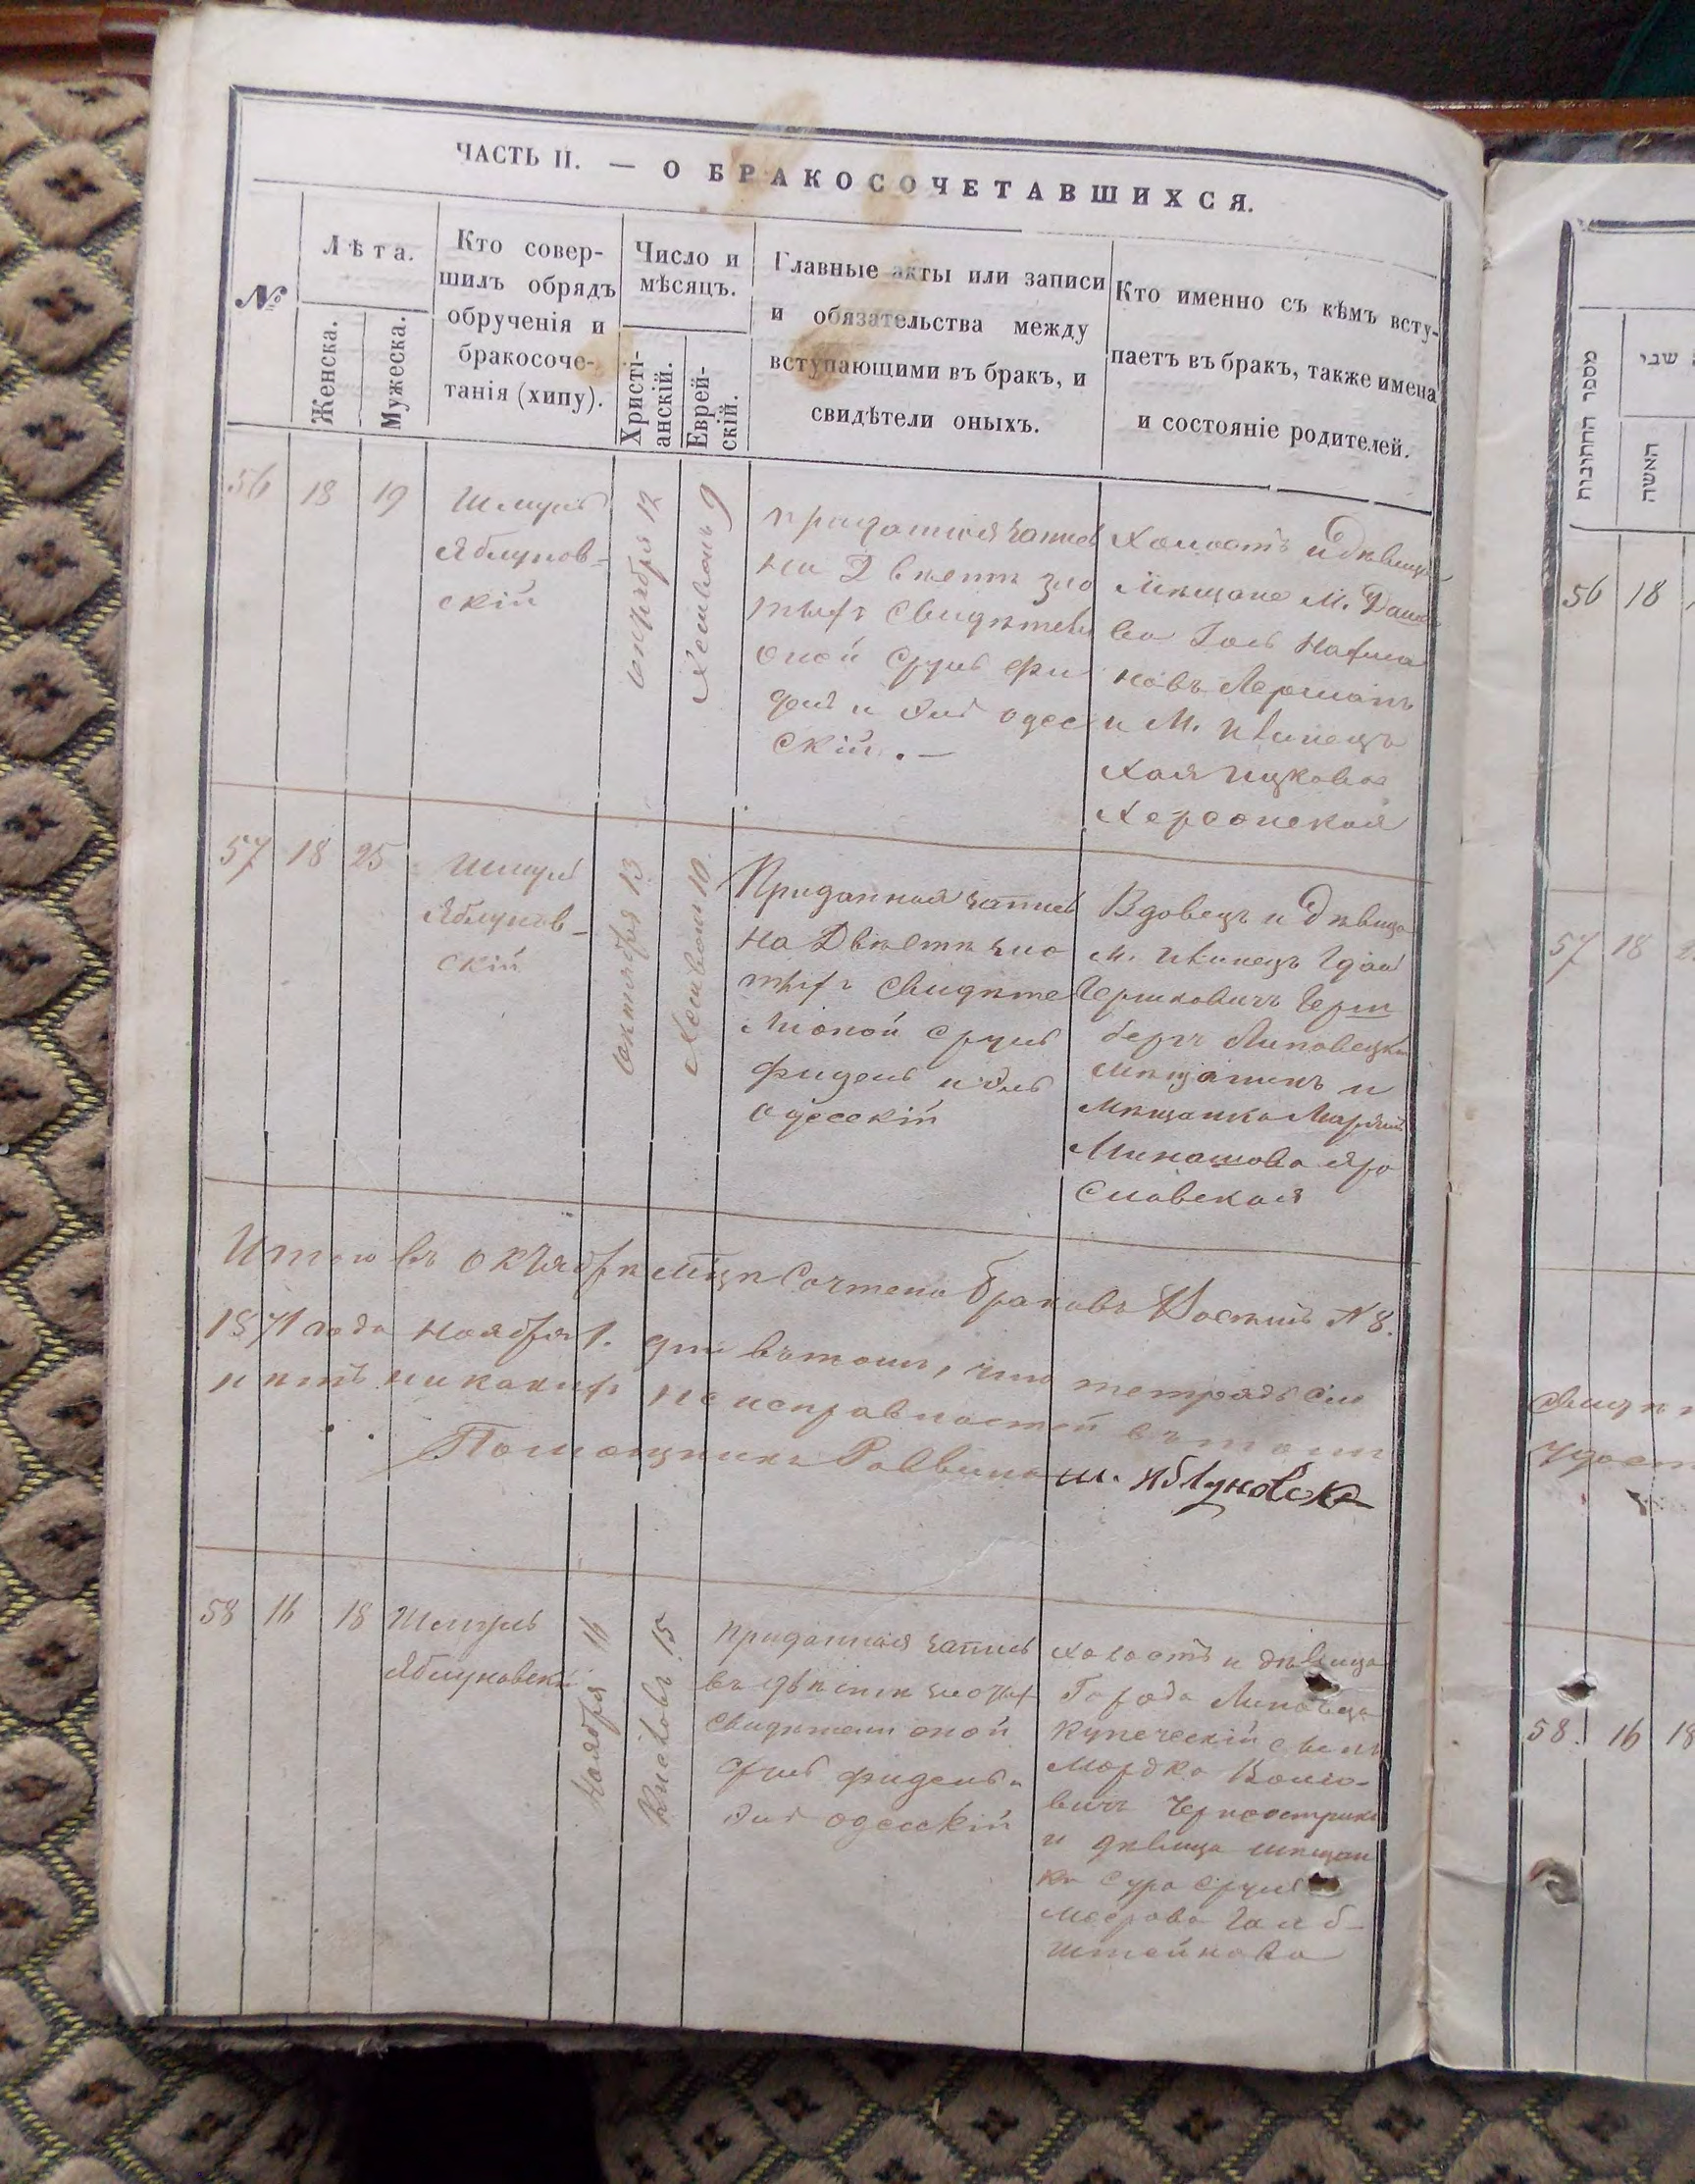 ЧАСТЬ II. — О БРАКОСОЧЕТАВШИХСЯ.
№
Лѣта.
Женска.
Мужеска.
Кто совер-
шилъ обрядъ
обрученія и
бракосоче-
танія (хипу).
Число и
мѣсяцъ.
Христі-
анскій.
Еврей-
скій.
Главные акты или записи
и обязательства между
вступающими въ бракъ, и
свидѣтели оныхъ.
Кто именно съ кѣмъ всту-
паетъ въ бракъ, также имена
и состояніе родителей.
56
18
19
Шмуль
Яблунов-
скій
октября 12
Хешвонъ 9
приданная запись
на Двѣстѣ зло
тыхъ свидѣтели
оной Сруль Фри
дель и Эль Одес
скій. —
Холостъ и дѣвица
Мѣщане м. Даше
ва
Новъ Лерманъ
и М. Ильинецъ
Хая Ицкова
Херсонская
57
18
25
Шмуль
Яблунов-
скій
октября 13
Хешвон 10
Приданная запись
на Двѣстѣ зло
тыхъ свидѣте
ли оной Сруль
Фридель и Эль
Одесскій
Вдовецъ и Дѣвица
м. Ильинецъ
Гершковичъ Герш
бергъ Липовецкій
мѣщанинъ и
мѣщанка
Минашова Яро
славская
Итого въ октябрѣ м-цѣ Сочтено браковъ Восемь № 8.
1871 года Ноября 1. дня въ томъ, что тетрадь сія
и нѣтъ никакихъ неисправностей въ томъ
Помощникъ Раввина Ш. Яблуновск
58
16
18
Шмуль
Яблуновскій
Ноября 16
Кислевъ 15
приданная запись
въ двѣстѣ злотых
свидѣтели оной
Сруль Фридель и
Эль Одесскій
холостъ и дѣвица
Города Липовца
купеческій сынъ
Мордко Волко-
вичъ
и дѣвица мѣщан
ка Сура Сруль
Меерова Гольб-
штейнова
מספר החתונות
שני
האשה
56
18
57
18
58.
16
18